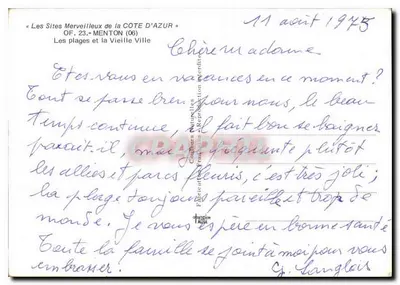 « Les Sites Merveilleux de la COTE D'AZUR »
OF. 23.- MENTON (06)
Les plages et la Vieille Ville
11 août 1975
Chère madame
Etes-vous en vacances en ce moment?
Tout se passe bien pour nous, le beau
temps continue, il fait bon se baigner
parait-il, moi je fréquente plutôt
les allées et parcs fleuris, c'est très joli;
la plage toujours pareille et trop de
monde. Je vous espère en bonne santé
Toute la famille se joint à moi pour vous
embrasser. G. Langlois